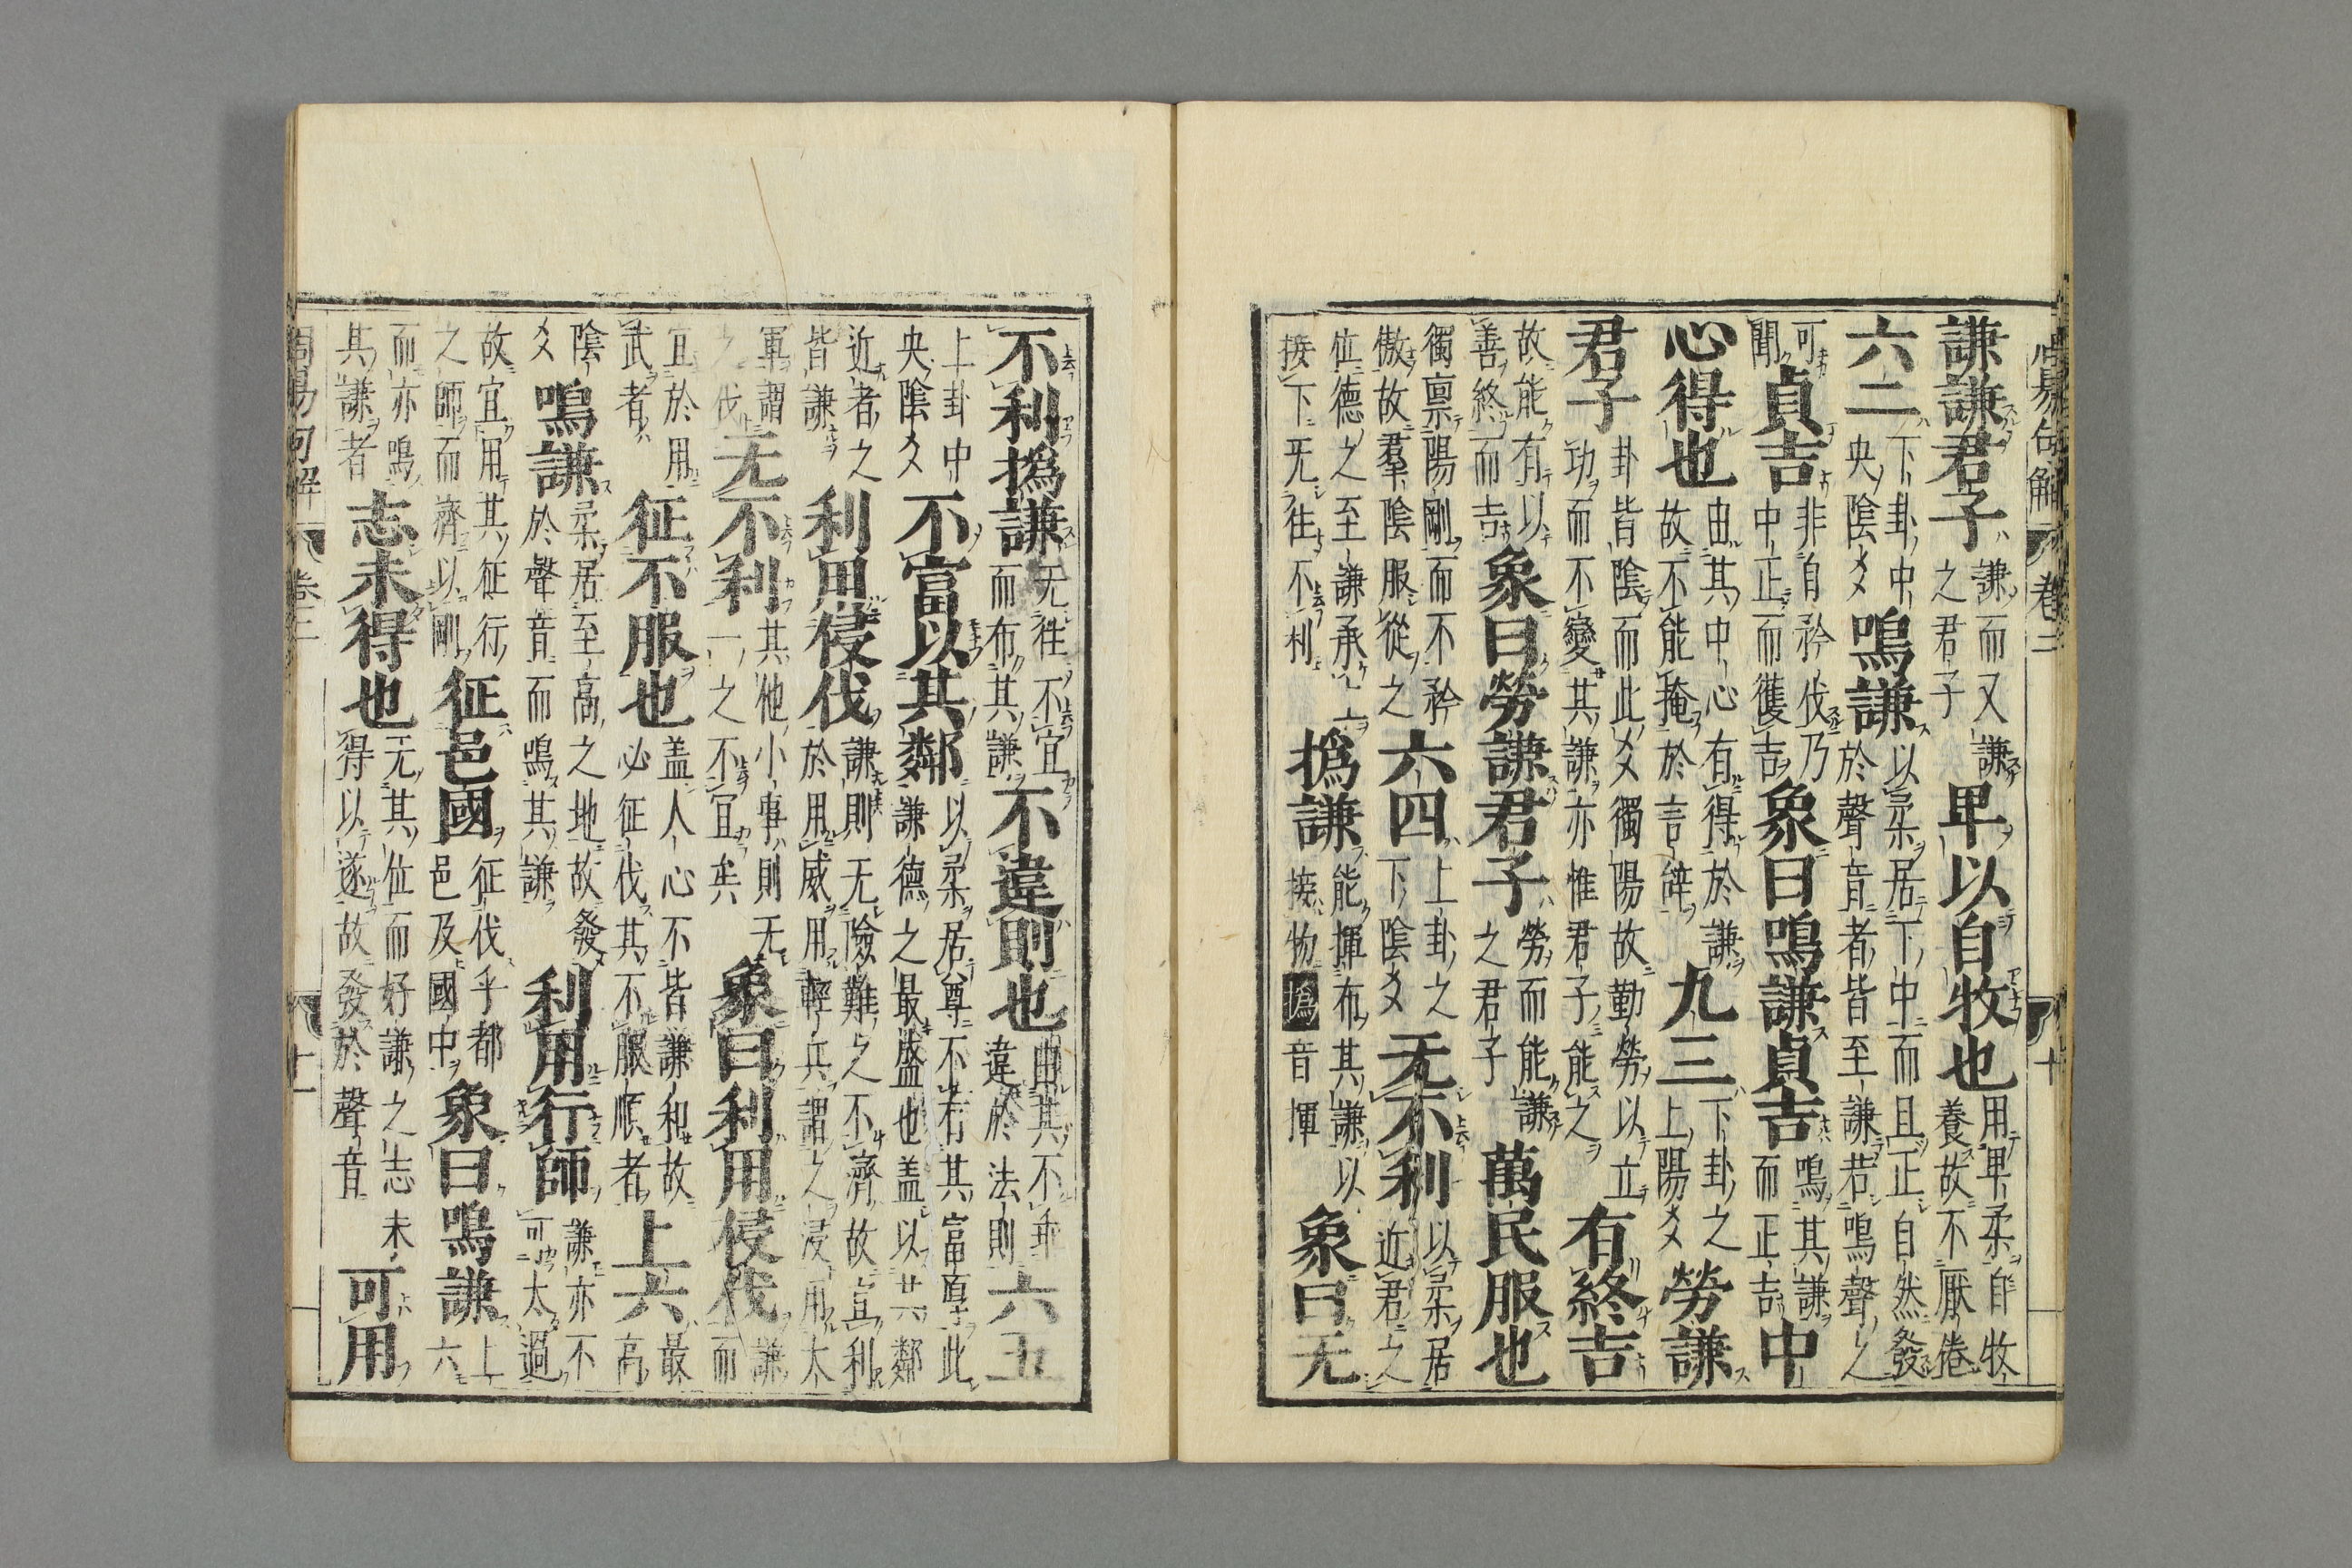 周易句解 卷三 十
謙謙君子 謙而又謙之君子 卑以自牧也 用卑柔自牧養故不厭倦
六二 下卦中央陰爻 鳴謙 以柔居下中而且正自然發於聲音者皆至謙若鳴聲之
可聞 貞吉 非自矜伐乃中正而獲吉 象曰鳴謙貞吉 鳴其謙而正吉 中
心得也 由其中心有得於謙故不能掩於言辭 九三 下卦之上陽爻 勞謙
君子 卦皆陰而此爻獨陽故勤勞以立功而不變其謙亦惟君子能之 有終吉
故能有以善終而吉 象曰勞謙君子 勞而能謙之君子 萬民服也
獨禀陽剛而不矜傲故羣陰服從之 六四 上卦之下陰爻 无不利 以柔居近君之
位德之至謙承上接下无往不利 撝謙 能揮布其謙以接物 撝音揮 象曰无
不利撝謙 无往不宜而布其謙 不違則也 由其不乖違於法則 六五
上卦中央陰爻 不富以其鄰 以柔居尊不有其富厚此謙德之最盛也盖以其鄰
近者之皆謙 利用侵伐 謙則无險難之不濟故宜利於用威用輕兵謂之浸用大
軍謂之伐 无不利 其他小事則无一之不宜矣 象曰利用侵伐 謙而
宜於用武者 征不服也 盖人心不皆謙和故必征伐其不服順者 上六 最高
陰爻 鳴謙 柔居至高之地故發於聲音而鳴其謙 利用行師 謙亦不可太過
故宜用其征行之師而濟以剛 征邑國 征伐乎都邑及國中 象曰鳴謙 上六
而亦鳴其謙者 志未得也 无其位而好謙之志未得以遂故發於聲音 可用
周易句解 卷三 十一